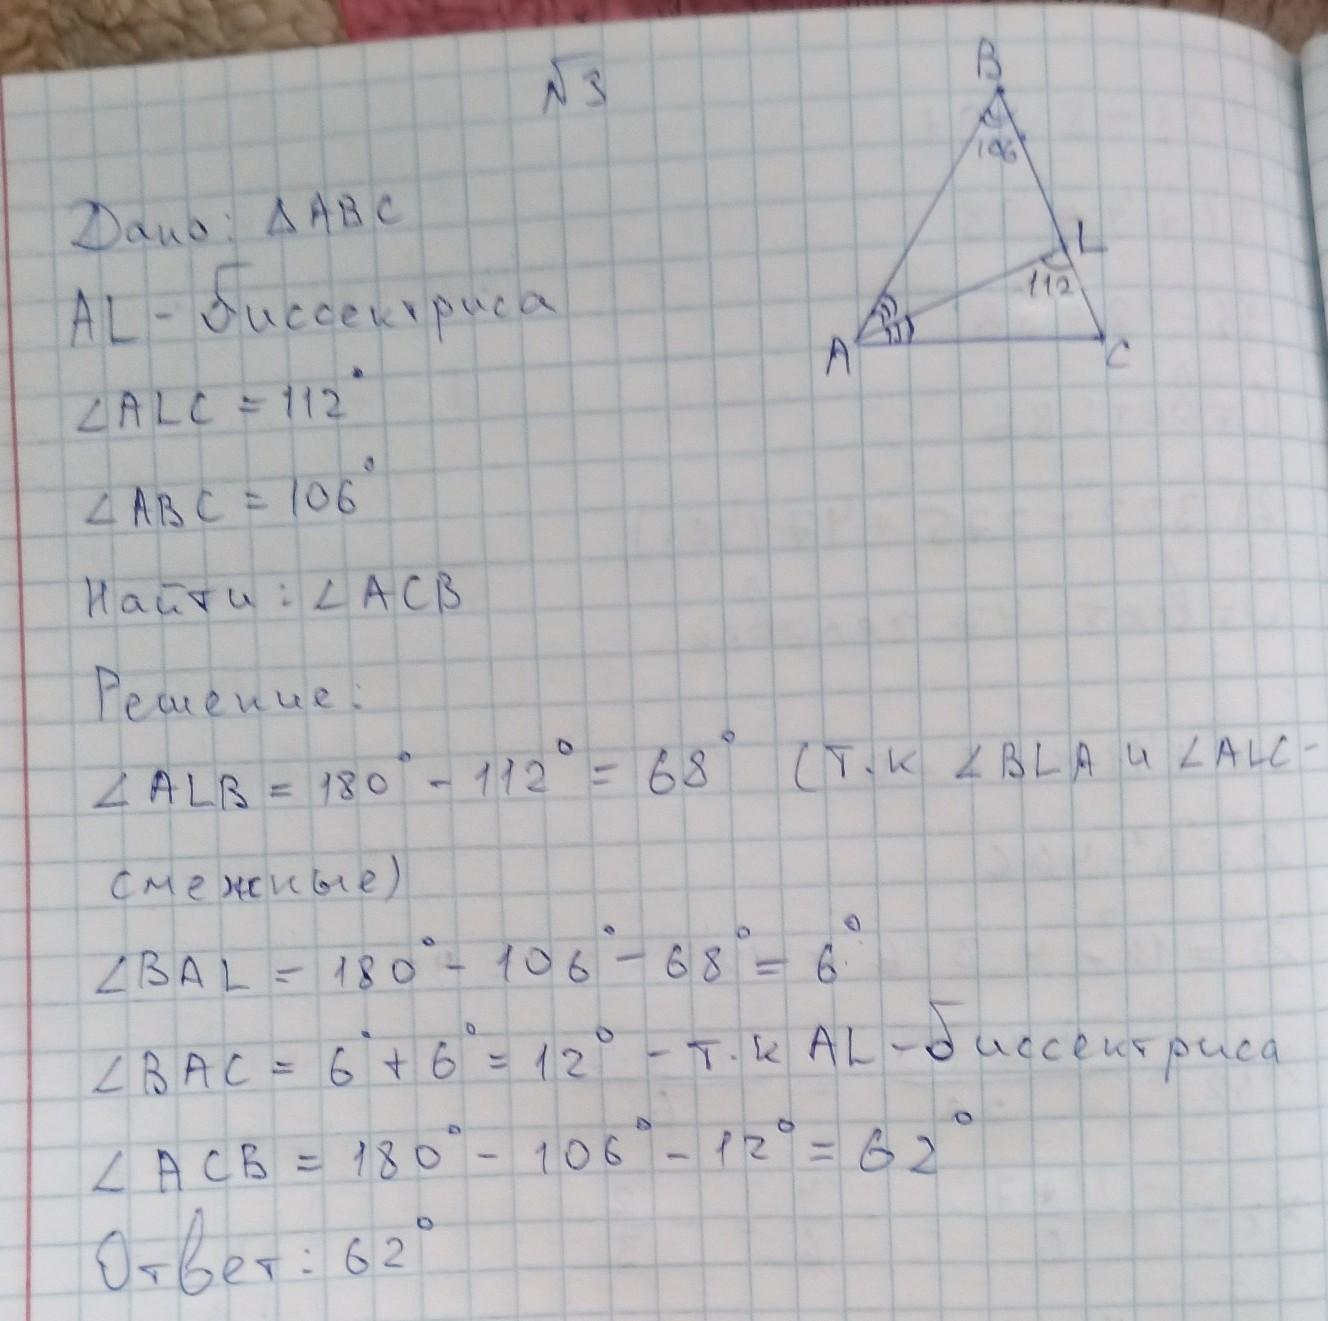 №3
B
106
L
112
A
C
Дано: ΔABC
AL - биссектриса
∠ALC = 112°
∠ABC = 106°
Найти: ∠ACB
Решение:
∠ALB = 180° - 112° = 68° (т.к ∠BLA и ∠ALC -
смежные)
∠BAL = 180° - 106° - 68° = 6°
∠BAC = 6° + 6° = 12° - т.к AL - биссектриса
∠ACB = 180° - 106° - 12° = 62°
Ответ: 62°